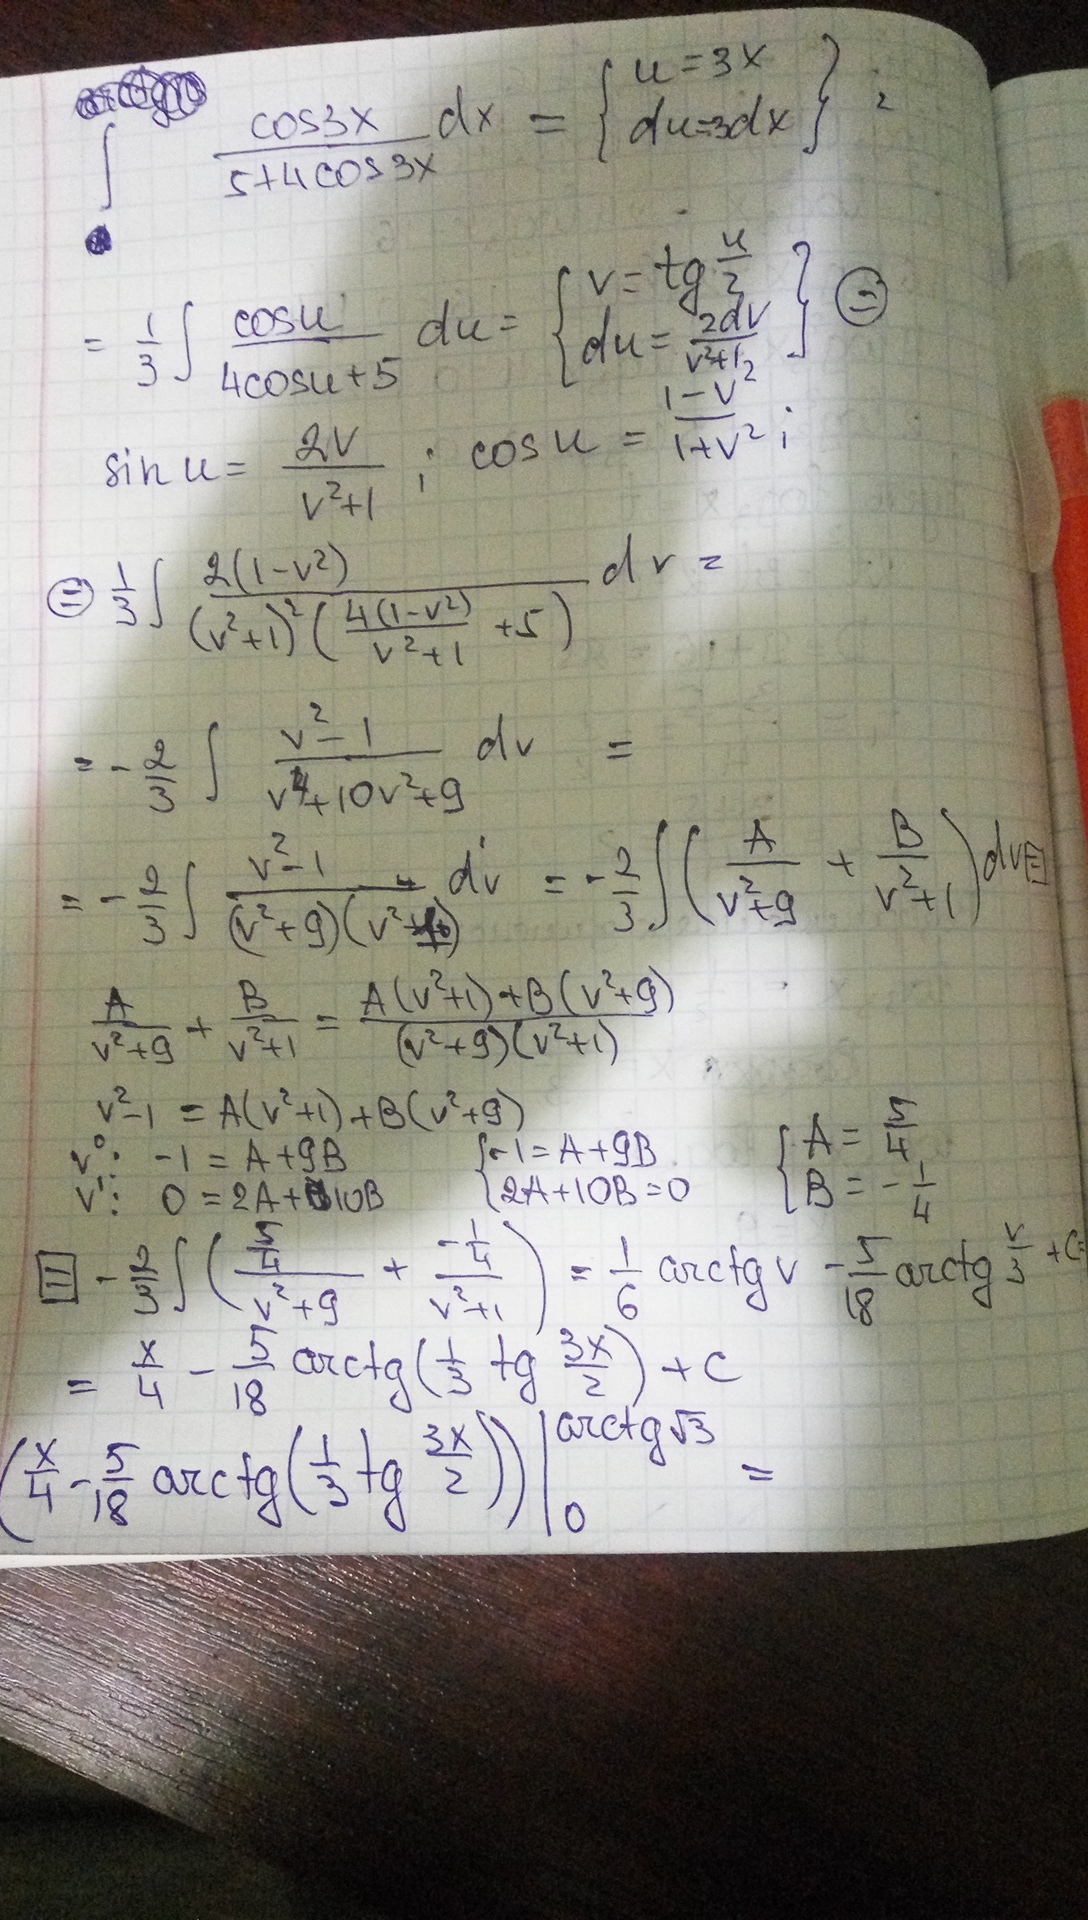 ∫ cos3x / (5+4cos3x) dx = { u=3x
du=3dx } ;
= 1/3 ∫ cosu / (4cosu+5) du = { v = tg u/2
du = 2dv / (v²+1) } ⊜
sin u = 2v / (v²+1) ; cos u = (1-v²) / (1+v²) ;
⊜ 1/3 ∫ 2(1-v²) / ((v²+1)² (4(1-v²)/(v²+1) +5)) dv =
= - 2/3 ∫ (v²-1) / (v⁴+10v²+9) dv =
= - 2/3 ∫ (v²-1) / ((v²+9)(v²+1)) dv = - 2/3 ∫ ( A/(v²+9) + B/(v²+1) ) dv ⊟
A/(v²+9) + B/(v²+1) = (A(v²+1)+B(v²+9)) / ((v²+9)(v²+1))
v²-1 = A(v²+1)+B(v²+9)
v⁰: -1 = A+9B { -1=A+9B { A = 5/4
v¹: 0 = 2A+10B 2A+10B=0 B = -1/4
⊟ - 2/3 ∫ ( (5/4)/(v²+9) + (-1/4)/(v²+1) ) = 1/6 arctg v - 5/18 arctg v/3 + C =
= x/4 - 5/18 arctg(1/3 tg 3x/2) + C
(x/4 - 5/18 arctg(1/3 tg 3x/2)) | arctg√3
0 =